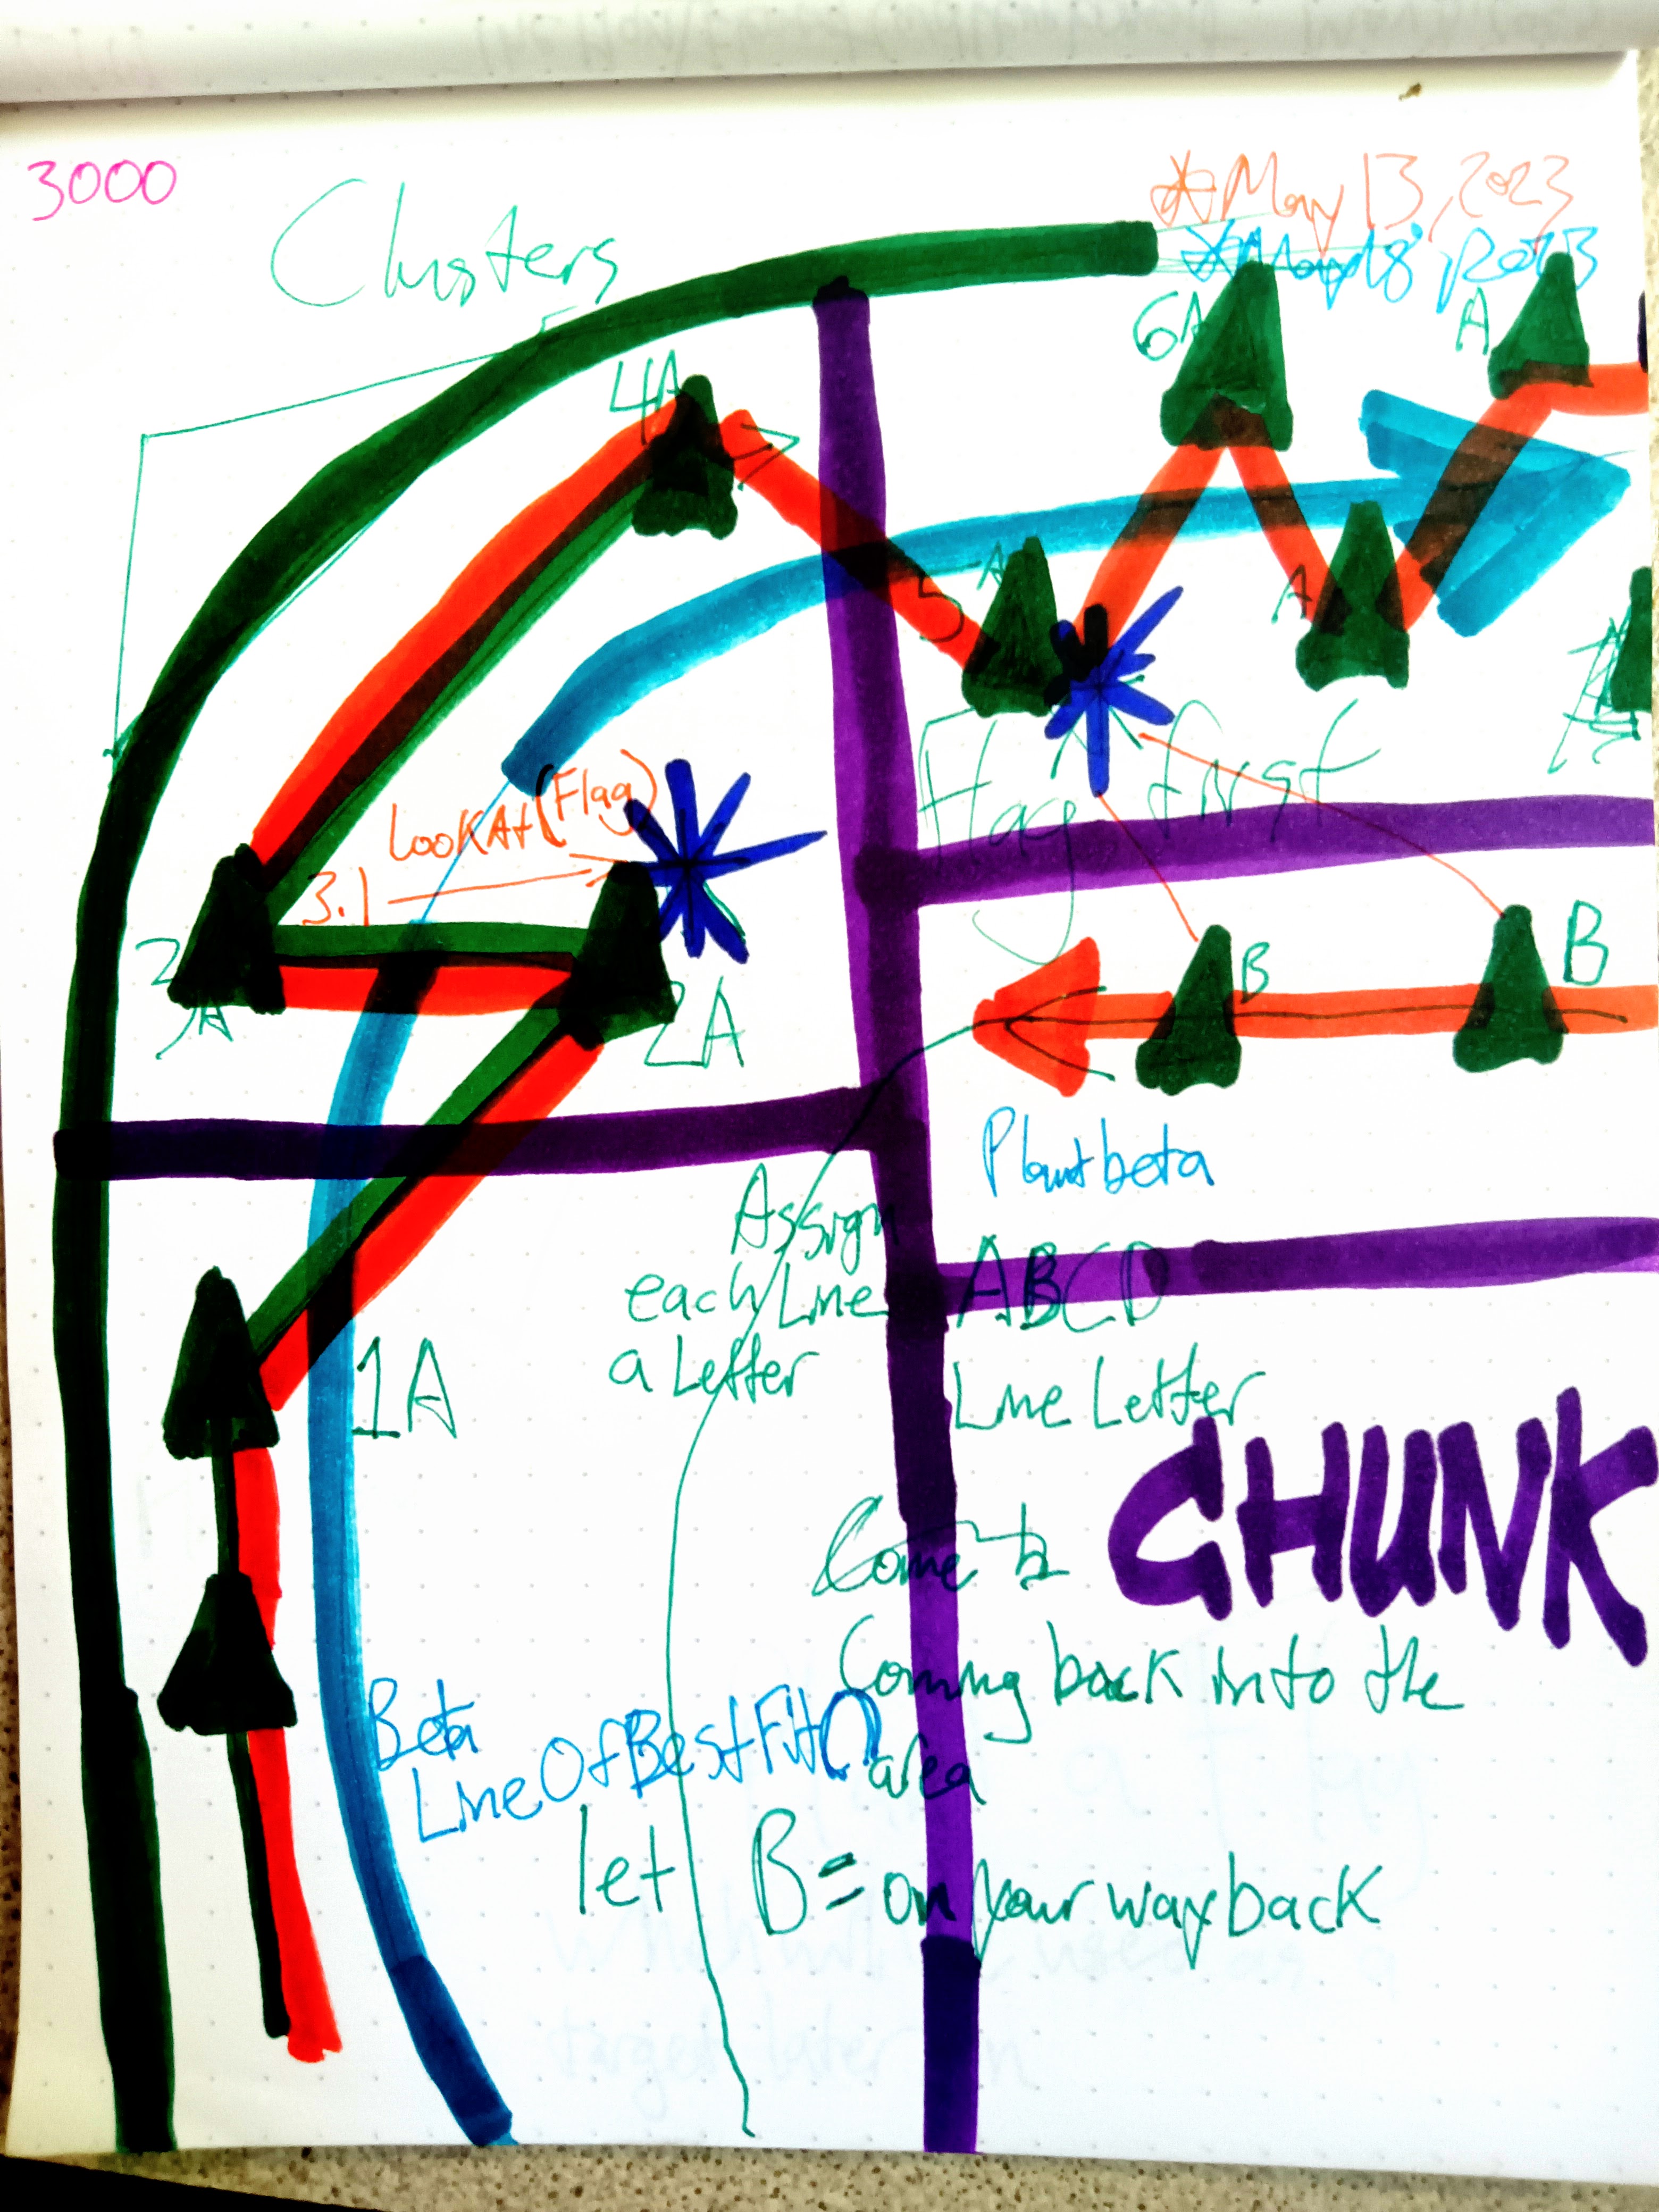 3000
Clusters
May 13, 2023
May 18, 2023
4A
6A
A
5 A
A
Flag first
LookAt(Flag)
3.1
2
3A
2A
B
B
Plant beta
Assign
each Line
a Letter
ABCD
Line Letter
1A
CHUNK
Come to
Coming back into the
area
Beta
LineOfBestFit()
let B = on your way back